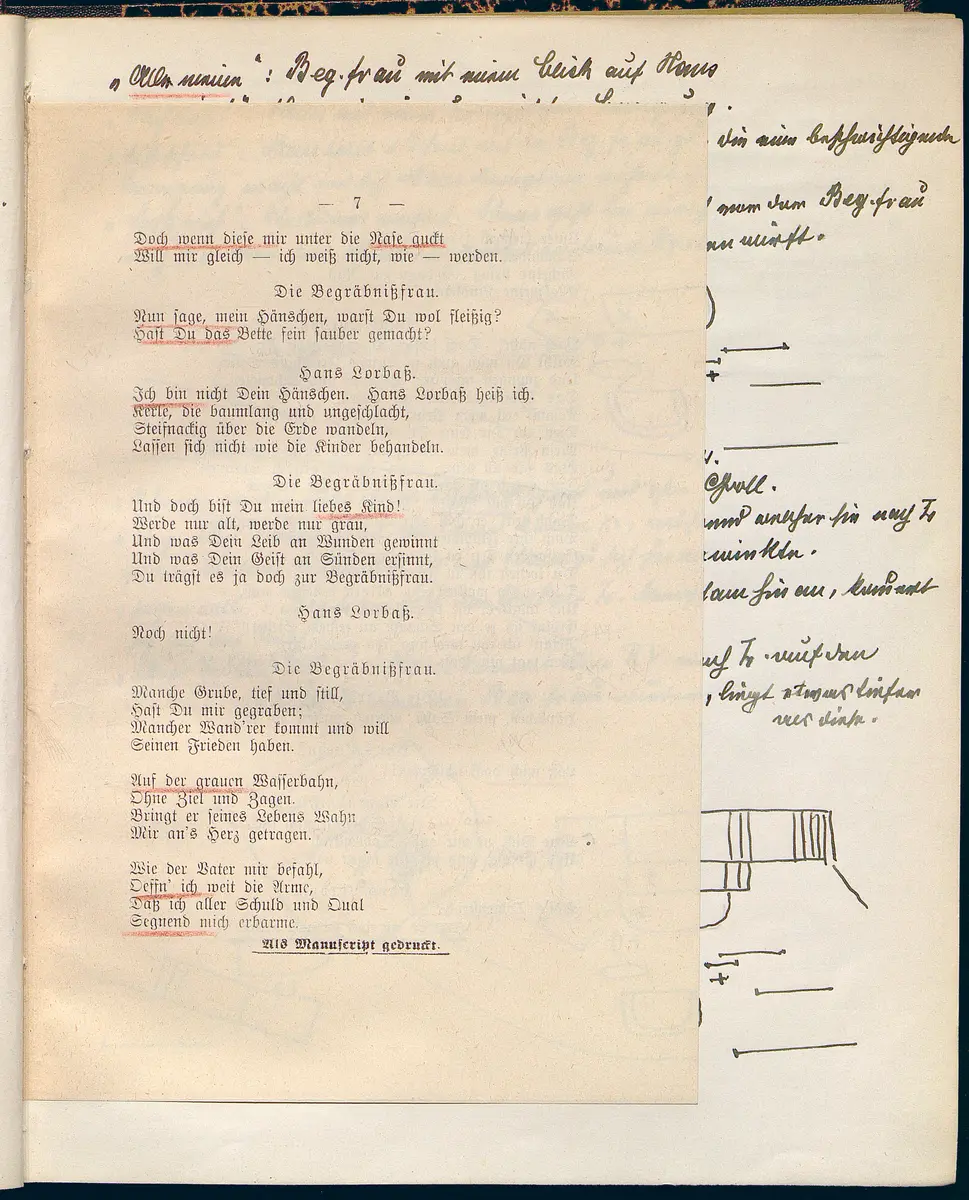 „Alle meinen“: Beg.frau mit einem Blick auf Hans
die eine beschwichtigende
Beg.frau
wirft.
— 7 —
Doch wenn dieſe mir unter die Naſe guckt
Will mir gleich — ich weiß nicht, wie — werden.
Die Begräbnißfrau.
Nun ſage, mein Hänschen, warſt Du wol fleißig?
Haſt Du das Bette fein ſauber gemacht?
Hans Lorbaß.
Ich bin nicht Dein Hänschen. Hans Lorbaß heiß ich.
Kerle, die baumlang und ungeſchlacht,
Steifnackig über die Erde wandeln,
Laſſen ſich nicht wie die Kinder behandeln.
Die Begräbnißfrau.
Und doch biſt Du mein liebes Kind!
Werde nur alt, werde nur grau,
Und was Dein Leib an Wunden gewinnt
Und was Dein Geiſt an Sünden erſinnt,
Du trägſt es ja doch zur Begräbnißfrau.
Hans Lorbaß.
Noch nicht!
Die Begräbnißfrau.
Manche Grube, tief und ſtill,
Haſt Du mir gegraben;
Mancher Wand'rer kommt und will
Seinen Frieden haben.
Auf der grauen Waſſerbahn,
Ohne Ziel und Zagen.
Bringt er ſeines Lebens Wahn
Mir an's Herz getragen.
Wie der Vater mir befahl,
Oeffn' ich weit die Arme,
Daß ich aller Schuld und Qual
Segnend mich erbarme.
Als Manuſcript gedruckt.
Groll.
welcher sie nach
winkte.
auf den
, liegt etwas tiefer
als diese.